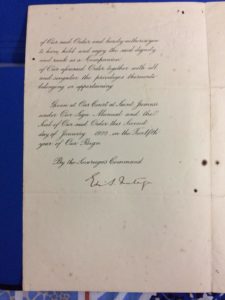 of Our said Order and hereby authorising you
to have hold and enjoy the said dignity
and rank as a Companion
of Our aforesaid Order together with all
and singular the privileges thereunto
belonging or appertaining
Given at Our Court at Saint James's
under Our Sign Manual and the
Seal of Our said Order this Second
day of January 1922 in the Twelfth
year of Our Reign
By the Sovereign's Command